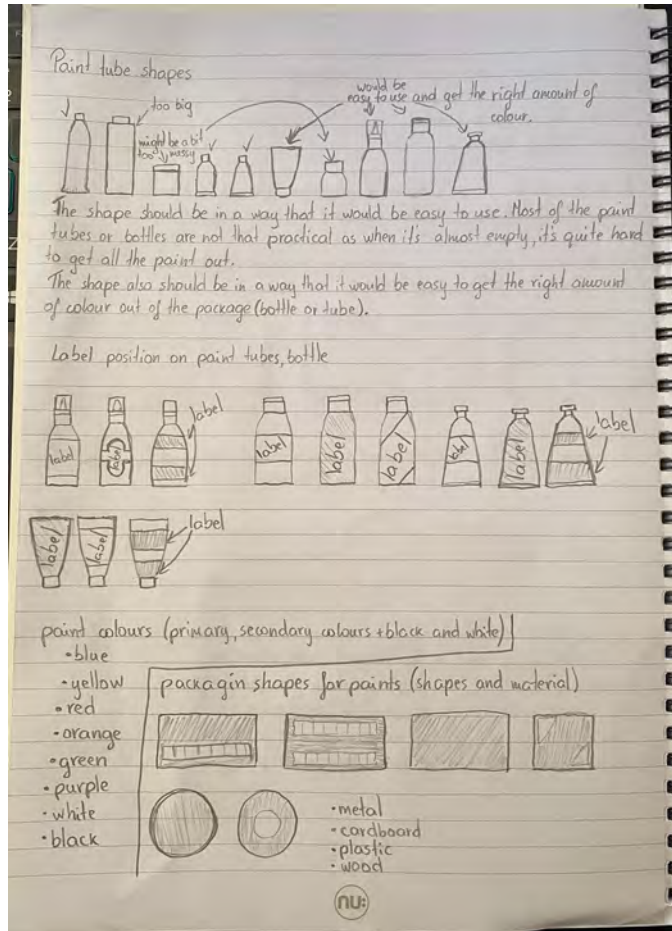 Paint tube shapes
too big
might be a bit
too messy
would be
easy to use and get the right amount of
colour.
The shape should be in a way that it would be easy to use. Most of the paint
tubes or bottles are not that practical as when it's almost empty, it's quite hard
to get all the paint out.
The shape also should be in a way that it would be easy to get the right amount
of colour out of the package (bottle or tube).
Label position on paint tubes, bottle
label
label
label
label
label
label
label
label
label
label
label
label
paint colours (primary, secondary colours + black and white)
• blue
• yellow
• red
• orange
• green
• purple
• white
• black
packagin shapes for paints (shapes and material)
• metal
• cardboard
• plastic
• wood
nu: